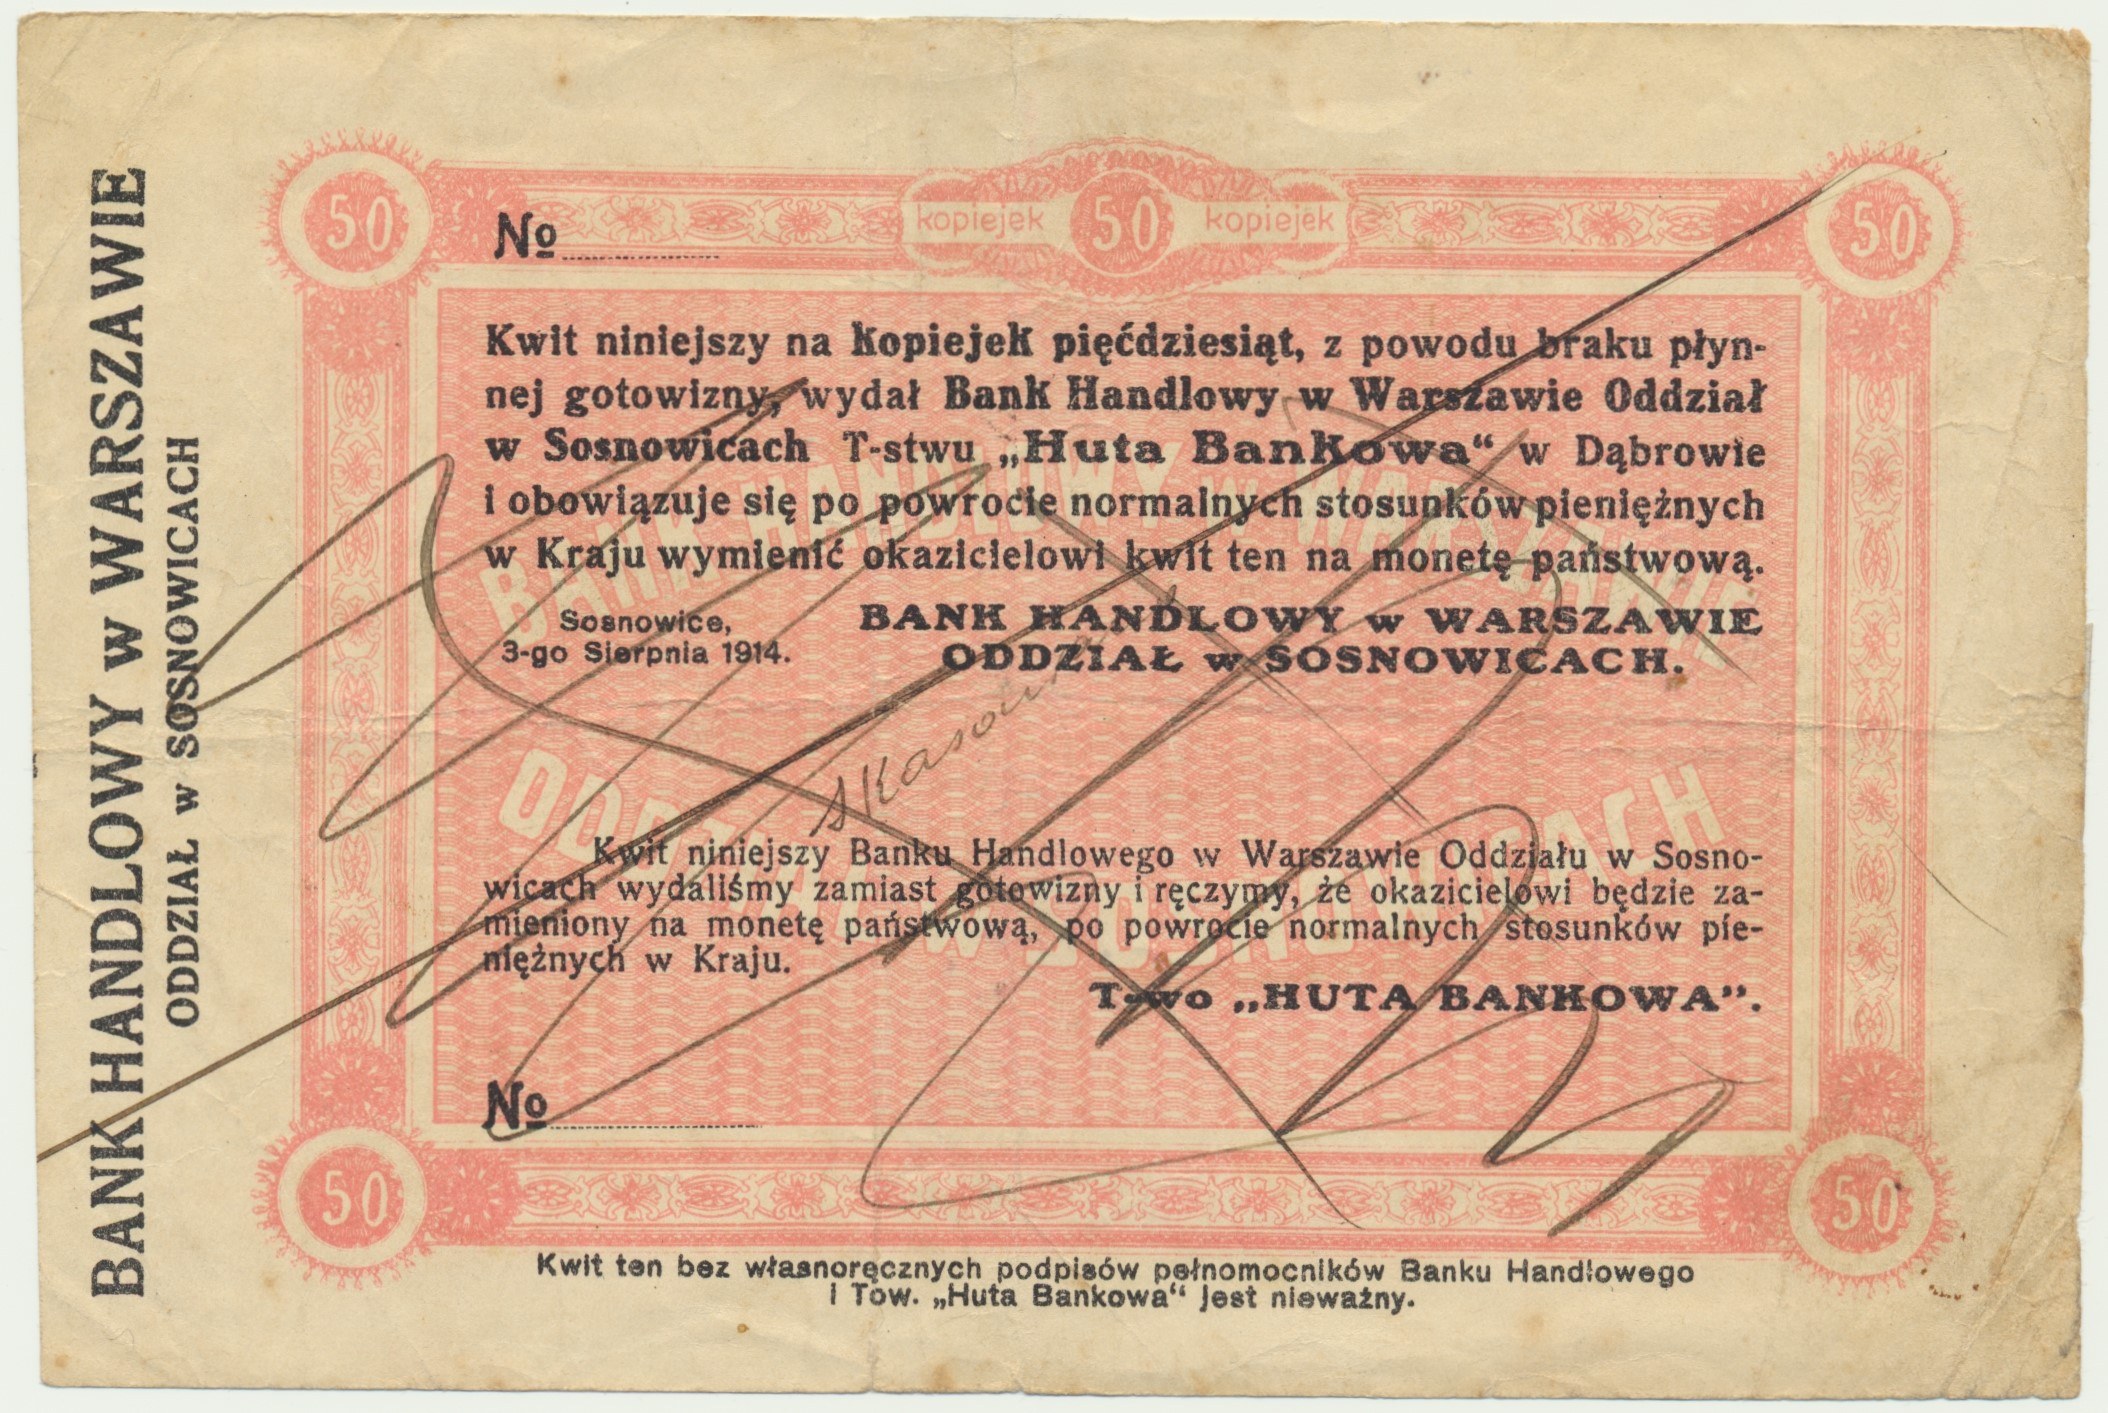 BANK HANDLOWY w WARSZAWIE
ODDZIAŁ w SOSNOWICACH
50
kopiejek 50 kopiejek
50
№
Kwit niniejszy na kopiejek pięćdziesiąt, z powodu braku płyn-
nej gotowizny, wydał Bank Handlowy w Warszawie Oddział
w Sosnowicach T-stwu „Huta Bankowa“ w Dąbrowie
i obowiązuje się po powrocie normalnych stosunków pieniężnych
w Kraju wymienić okazicielowi kwit ten na monetę państwową.
BANK HANDLOWY w WARSZAWIE
Sosnowice,
3-go Sierpnia 1914.
BANK HANDLOWY w WARSZAWIE
ODDZIAŁ w SOSNOWICACH.
ODDZIAŁ w SOSNOWICACH
Kwit niniejszy Banku Handlowego w Warszawie Oddziału w Sosno-
wicach wydaliśmy zamiast gotowizny i ręczymy, że okazicielowi będzie za-
mieniony na monetę państwową, po powrocie normalnych stosunków pie-
niężnych w Kraju.
T-wo „HUTA BANKOWA”.
№
50
50
Kwit ten bez własnoręcznych podpisów pełnomocników Banku Handlowego
i Tow. „Huta Bankowa“ jest nieważny.